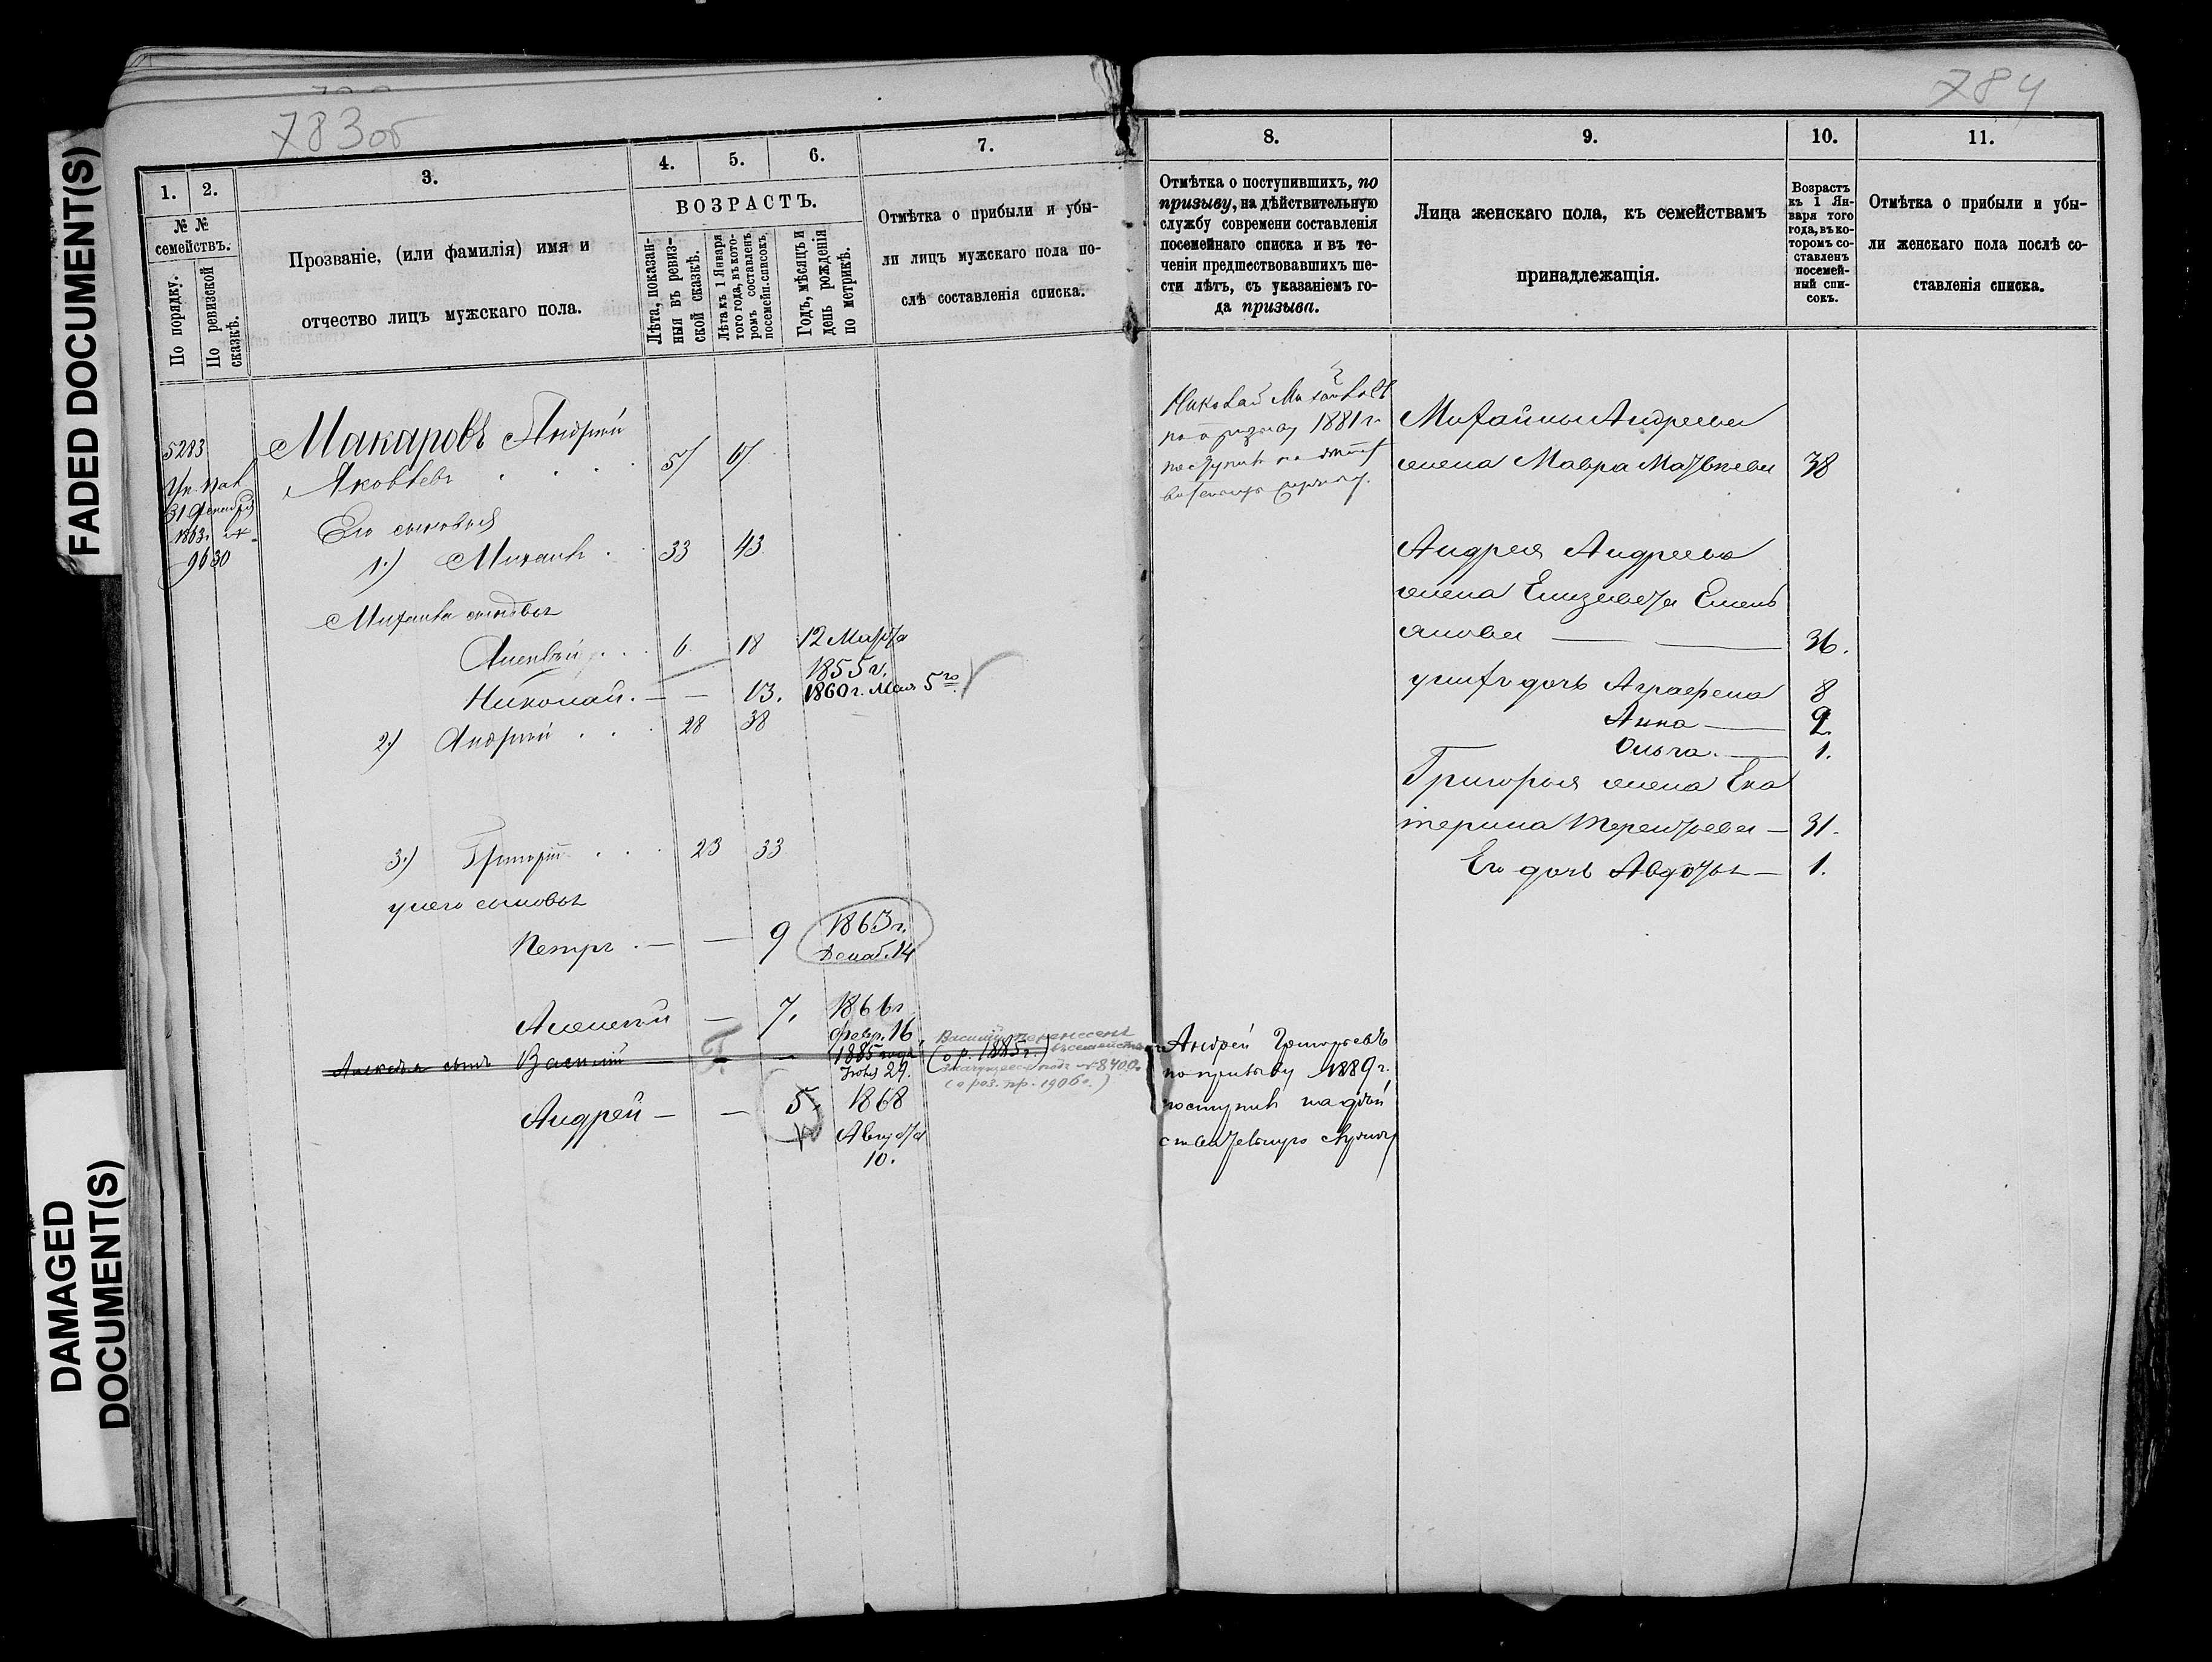 FADED DOCUMENT(S)
DAMAGED
DOCUMENT(S)
783об
1.
2.
3.
4.
5.
6.
7.
№ №
семействъ.
По порядку.
По ревизской
сказкѣ.
Прозваніе, (или фамилія) имя и
отчество лицъ мужскаго пола.
ВОЗРАСТЪ.
Лѣта, показан-
ныя въ ревиз-
ской сказкѣ.
Лѣта къ 1 Января
того года, въ кото-
ромъ составленъ
посемейн. списокъ.
Годъ, мѣсяцъ и
день рожденія
по метрикѣ.
Отмѣтка о прибыли и убы-
ли лицъ мужскаго пола по-
слѣ составленія списка.
5283
31 Декабря
1863 г.
9630
Макаровъ Андрей
Яковлевъ
Его сыновья
1.) Михаилъ 33 43
Михаила сыновья
Алексѣй 6 18 12 Марта
1855 г.
Николай — — 13. 1860 г. Мая 5го
2.) Андрей 28 38
3.) Григорій 23 33
у него сыновья
Петръ — — 9 1863 г.
Декаб. 14
Алексѣй — 7. 1866 г
Февр. 16
Алексѣя сынъ Василій — — 1885 года
Іюля 29.
Василій перенесенъ
(о р. 1885 г.) въ семейство
значущееся подъ № 8400.
(о роз. пр. 1906 г.)
Андрей — — 5. 1868
Августа
10.
784
8.
9.
10.
11.
Отмѣтка о поступившихъ, по
призыву, на дѣйствительную
службу современи составленія
посемейнаго списка и въ те-
ченіи предшествовавшихъ ше-
сти лѣтъ, съ указаніемъ го-
да призыва.
Лица женскаго пола, къ семействамъ
принадлежащія.
Возрастъ
къ 1 Ян-
варя того
года, въ ко-
торомъ со-
ставленъ
посемей-
ный спи-
сокъ.
Отмѣтка о прибыли и убы-
ли женскаго пола послѣ со-
ставленія списка.
Николай Михайловъ
по призыву 1881 г.
поступилъ на
службу.
Михайлы Андреева
жена Мавра Матвѣева 38
Андрея Андреева
жена Елизавета Емель
янова — 36.
у нихъ дочь Аграфена 8
Анна —
Ольга. — 1.
Григорья жена Ека
терина Терентьева — 31.
Его дочь Авдотья — 1.
Андрей Григорьевъ
по призыву 1889 г.
поступилъ на дѣй
ствительную службу